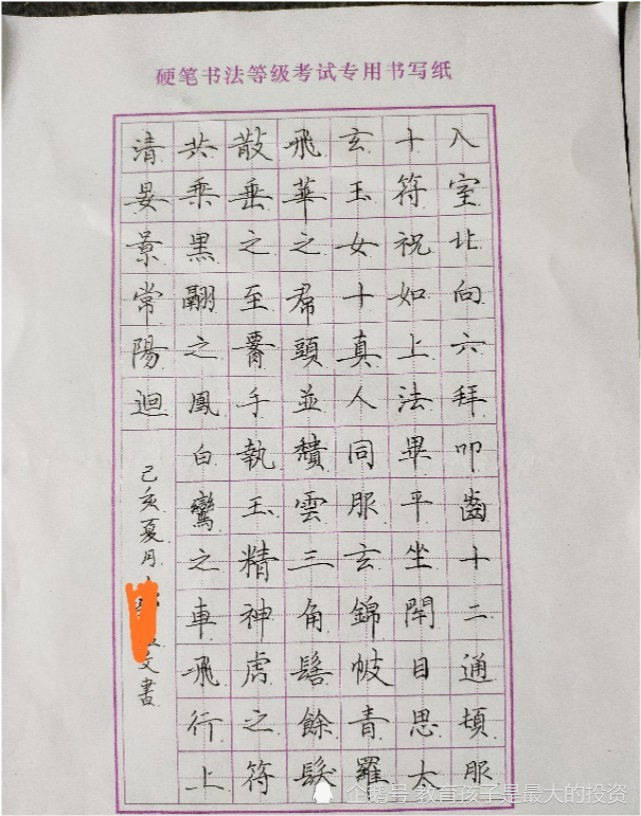 硬笔书法等级考试专用书写纸
入室北向六拜叩齒十二通頓服
十符祝如上法畢平坐閇目思太
玄玉女十真人同服玄錦帔青羅
飛華之帬頭並穨雲三角髻餘髮
散垂之至署手執玉精神虎之符
共乘黑翮之鳳白鸞之車飛行上
清晏景常陽迴
己亥夏月
文書
企鹅号 教育孩子是最大的投资